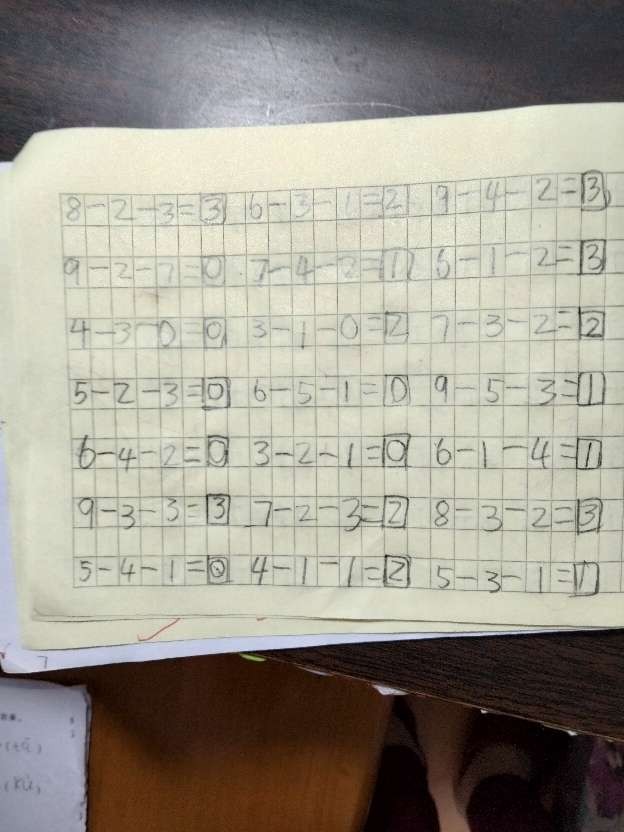 8-2-3=3 6-3-1=2 9-4-2=3
9-2-7=0 7-4-2=1 6-1-2=3
4-3-0=0 3-1-0=2 7-3-2=2
5-2-3=0 6-5-1=0 9-5-3=1
6-4-2=0 3-2-1=0 6-1-4=1
9-3-3=3 7-2-3=2 8-3-2=3
5-4-1=0 4-1-1=2 5-3-1=1
7